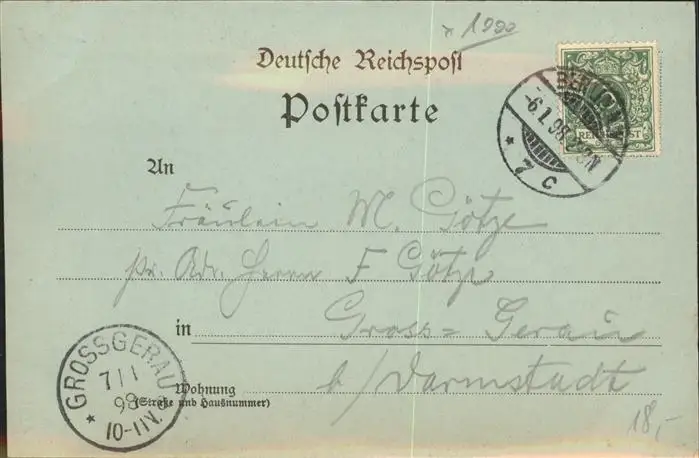 * 1900
Deutsche Reichspost
Postkarte
BERLIN
-6.1.98.
* 7 C
REICHSPOST
An
Fräulein M. Götze
pr. Adr. Herrn F Götze
in Gross=Gerau
b/Darmstadt
Wohnung
(Straße und Hausnummer)
GROSSGERAU
7/1
98
10-11V.
*
18,-